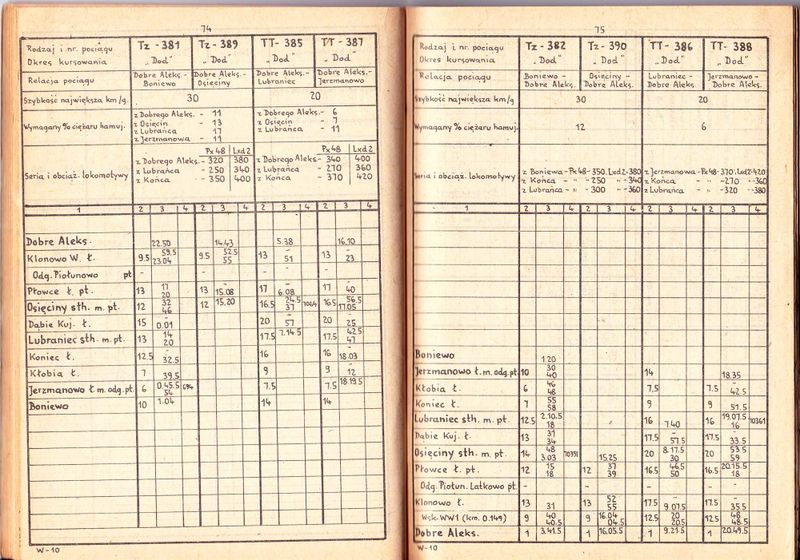 74
Rodzaj i nr. pociągu Tz - 381 Tz - 389 TT - 385 TT - 387
Okres kursowania „Dod” „Dod” „Dod” „Dod”
Relacja pociągu Dobre Aleks.- Boniewo Dobre Aleks.- Osięciny Dobre Aleks.- Lubraniec Dobre Aleks.- Jerzmanowo
Szybkość największa km/g. 30 20
Wymagany % ciężaru hamuj.
z Dobrego Aleks. - 11 z Dobrego Aleks. - 6
z Osięcin - 13 z Osięcin - 7
z Lubrańca 17 z Lubrańca - 11
z Jerzmanowa - 11
Seria i obciąż. lokomotywy
Px48 Lxd2 Px48 Lxd2
z Dobrego Aleks. - 320 380 z Dobrego Aleks. - 340 400
z Lubrańca - 250 340 z Lubrańca - 270 360
z Końca - 350 400 z Końca - 370 420
1 2 3 4 2 3 4 2 3 4 2 3 4
Dobre Aleks. 22.50 14.43 5.38 16.10
Klonowo W. Ł. 9.5 59.5 23.04 9.5 52.5 55 13 - 51 13 - 23
Odg. Piołunowo pt - - - -
Płowce Ł. pt. 13 17 20 13 - 15.08 17 - 6.08 17 - 40
Osięciny sth. m. pt 12 32 46 12 15.20 16.5 24.5 37 16.5 56.5 17.05
Dąbie Kuj. Ł. 15 - 0.01 20 - 57 20 - 25
Lubraniec sth. m. pt. 13 14 20 17.5 7.14.5 17.5 42.5 47
Koniec Ł. 12.5 - 32.5 16 16 - 18.03
Kłobia Ł. 7 - 39.5 9 9 - 12
Jerzmanowo Ł. m. odg. pt. 6 0.45.5 54 7.5 7.5 18.19.5
Boniewo 10 1.04 14 14
W-10
75
Rodzaj i nr. pociągu Tz - 382 Tz - 390 TT - 386 TT - 388
Okres kursowania „Dod” „Dod” „Dod” „Dod”
Relacja pociągu Boniewo - Dobre Aleks. Osięciny - Dobre Aleks. Lubraniec - Dobre Aleks. Jerzmanowo - Dobre Aleks.
Szybkość największa km/g 30 20
Wymagany % ciężaru hamuj. 12 6
Seria i obciąż. lokomotywy
z Boniewa - Px48-350. Lxd2-380 z Jerzmanowa - Px48-370. Lxd2-420
z Końca - " -250 " -340 z Końca - " -270 " -360
z Lubrańca - " -300 " -360 z Lubrańca - " -320 " -380
1 2 3 4 2 3 4 2 3 4 2 3 4
Boniewo 1.20
Jerzmanowo Ł. m. odg. pt. 10 30 40 14 18.35
Kłobia Ł. 6 46 48 7.5 7.5 - 42.5
Koniec Ł. 7 55 58 9 9 - 51.5
Lubraniec sth. m. pt 12.5 2.10.5 18 16 7.40 16 19.07.5 16
Dąbie Kuj. Ł. 13 31 34 17.5 - 57.5 17.5 - 33.5
Osięciny sth. m. pt 14 48 3.03 15.25 20 8.17.5 30 20 53.5 59
Płowce Ł. pt. 12 15 18 12 37 39 16.5 46.5 50 16.5 20.15.5 18
Odg. Piołun. Latkowo pt -
Klonowo Ł. 13 - 31 13 52 55 17.5 - 9.07.5 17.5 - 35.5
Wsk. WW1 (km. 0.149) 9 40 40.5 9 16.04 04.5 12.5 20 20.5 12.5 48 48.5
Dobre Aleks. 1 3.41.5 1 16.05.5 1 9.21.5 1 20.49.5
W-10